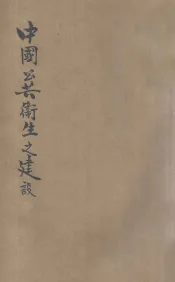 中國公共衛生之建設